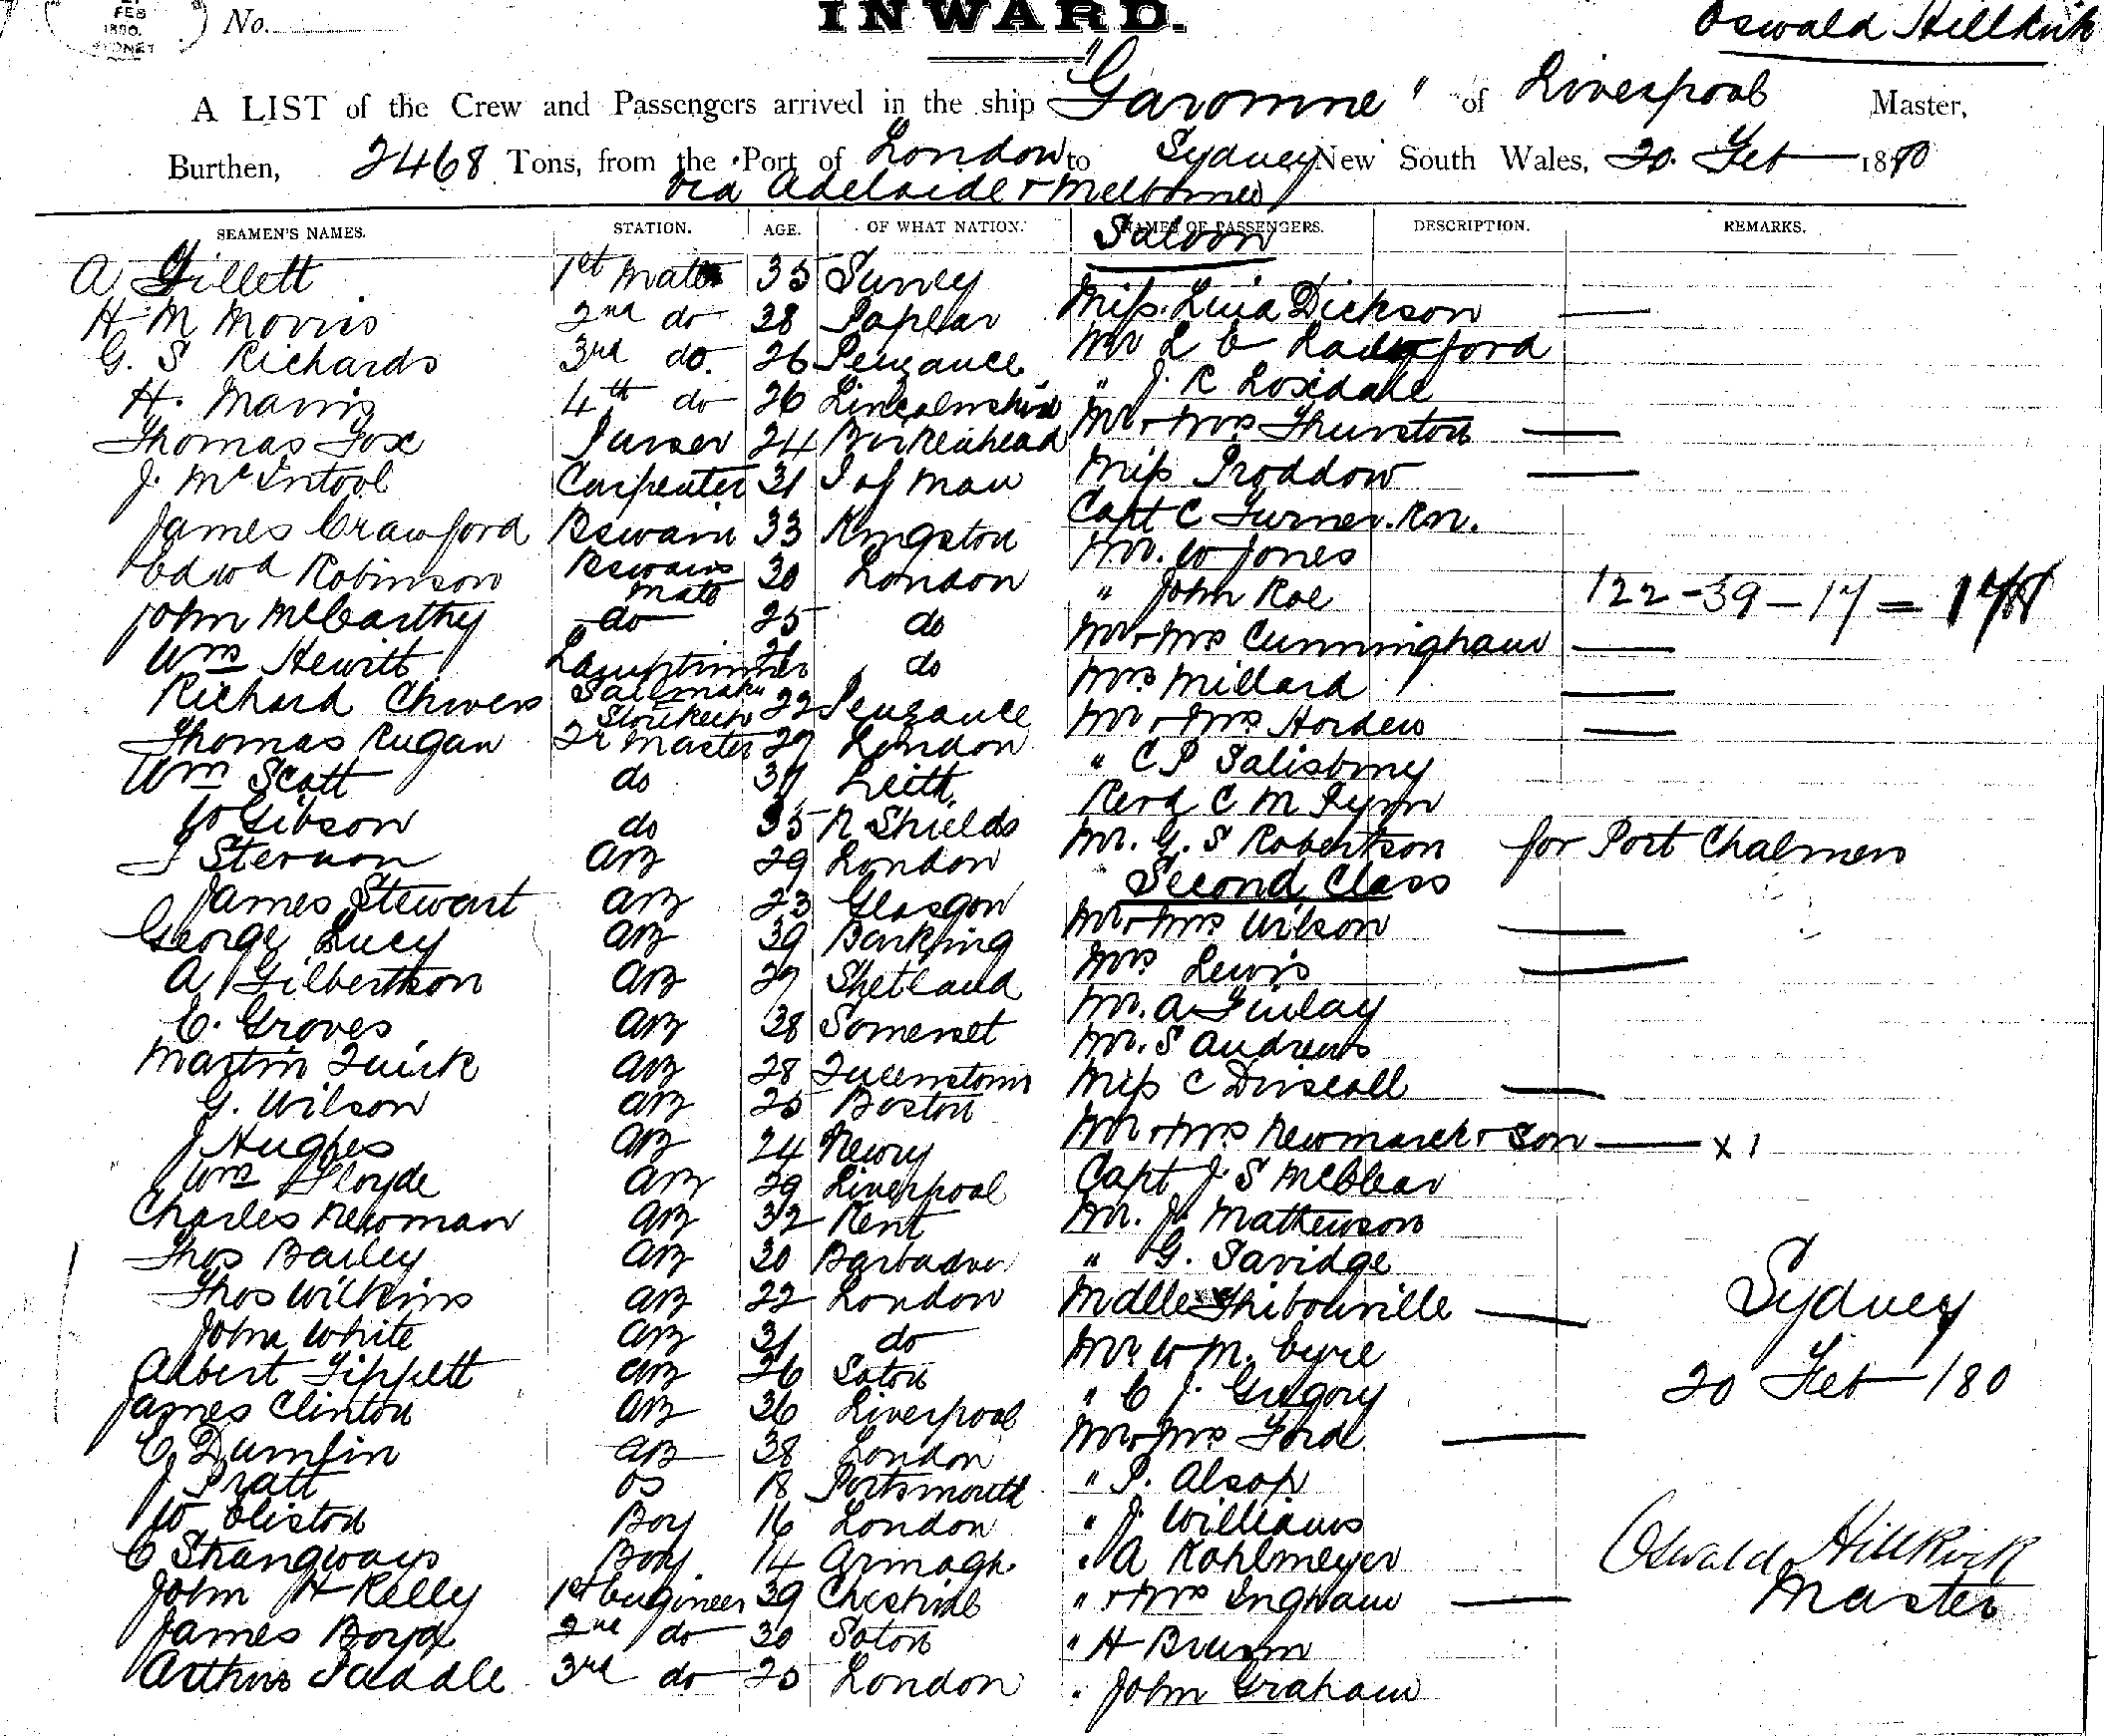 FEB
1880.
SYDNEY
No.
INWARD.
Oswald Hillkirk
A LIST of the Crew and Passengers arrived in the ship "Garonne" of Liverpool Master,
Burthen, 2468 Tons, from the Port of London to Sydney New South Wales, 20. Feb 1880
via Adelaide & Melbourne
SEAMEN'S NAMES. STATION. AGE. OF WHAT NATION. NAMES OF PASSENGERS. DESCRIPTION. REMARKS.
Saloon
A Gillett 1st Mate 35 Surrey
H M Morris 2nd do 28 Poplar Miss Dickson
G. S Richards 3rd do. 26 Penzance Mr L
H. Marris 4th do 26 Lincolnshire " J. R Loxdale
Thomas Fox Purser 24 Birkenhead Mr & Mrs Thurston
J. Carpenter 31 I of Man Miss Proddow
James Crawford Bswain 33 Kingston Capt C Turner. RN.
Edwd Robinson Bswains Mate 30 London Mr. W Jones
John McCarthy do 25 do " John Roe 122-39-17=
Wm Hewitt Lamptrimmer do Mr & Mrs Cunningham
Richard Chivers Sailmaker Storekeeper 22 Penzance Mrs Millard
Thomas Rugan Qr Master 27 London Mr & Mrs Hordern
Wm Scott do 37 Leith " C P Salisbury
W Gibson do 35 N Shields Revd C M Pym
Sternon AB 29 London Mr. G. S Robertson for Port Chalmers
Second Class
James Stewart AB 23 Glasgow
George Lucy AB 39 Barking Mr & Mrs Wilson
A Gilbertson AB 27 Shetland Mrs Lewis
C. Groves AB 38 Somerset Mr. A Finlay
Martin Quirk AB 28 Queenstown Mr. S Andrews
G. Wilson AB 25 Boston Miss C Driscoll
J Hughes AB 24 Newry Mr & Mrs Newmarch & Son x 1
Wm Lloyde AB 29 Liverpool Capt J. S
Charles Newman AB 32 Kent Mr. J. Mathewson
Thos Bailey AB 30 Barbadoes " G. Savidge
Thos Wilkins AB 22 London Mdlle Thibouville Sydney
John White AB 31 do Mr W M. Eyre
Albert Tippett AB 26 Soton " C J. Gregory 20 Feb /80
James Clinton AB 36 Liverpool Mr & Mrs Ford
C AB 38 London " P. Alsop
J Pratt OS 18 Portsmouth " J Williams
W Eliston Boy 16 London " A Kohlmeyer Oswald Hillkirk
C Strangways Boy 14 Armagh " & Mrs Ingham Master
John H Kelly 1st Engineer 39 Cheshire " H
James Boyd 2nd do 30 Soton " John Graham
Arthur 3rd do 25 London